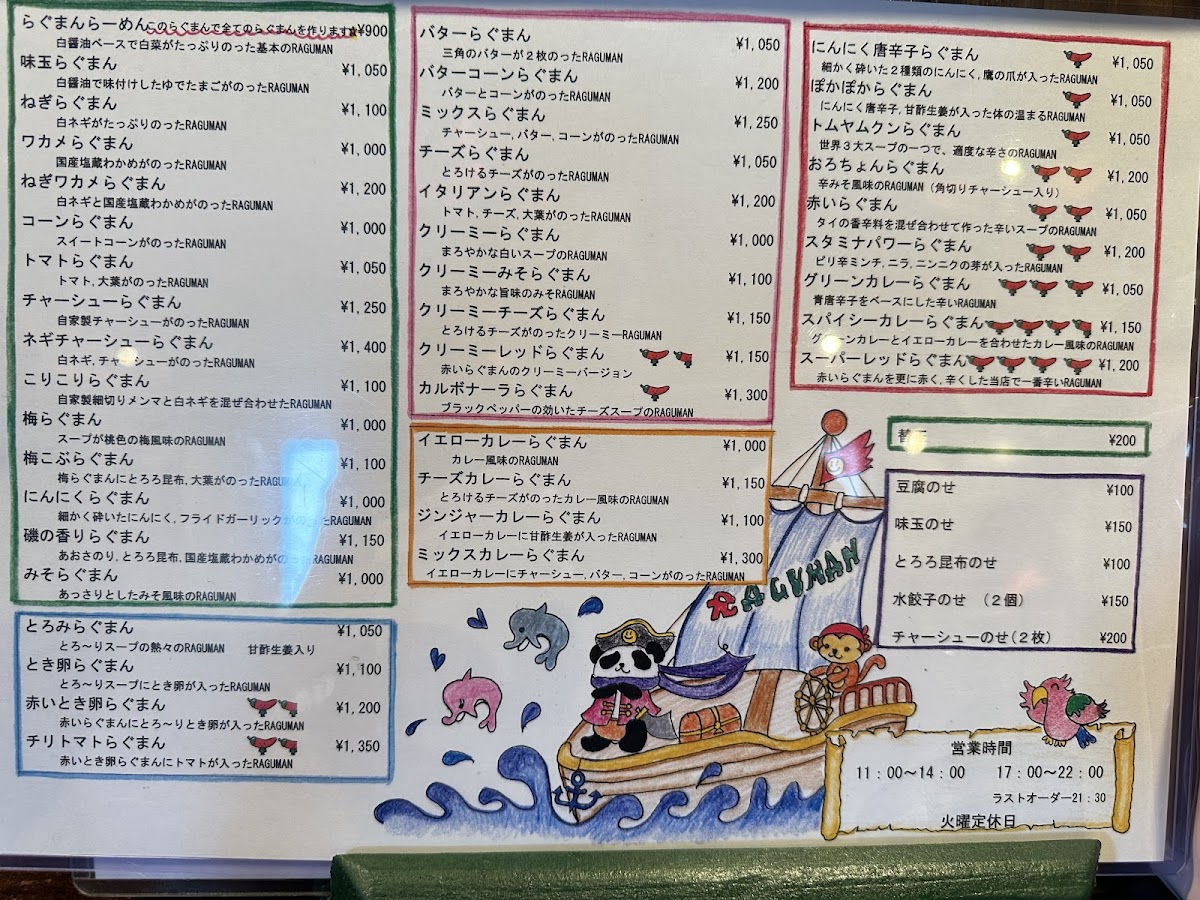 らぐまんらーめん このらぐまんで全てのらぐまんを作ります☆ ¥900
白醤油ベースで白菜がたっぷりのった基本のRAGUMAN
味玉らぐまん ¥1,050
白醤油で味付けしたゆでたまごがのったRAGUMAN
ねぎらぐまん ¥1,100
白ネギがたっぷりのったRAGUMAN
ワカメらぐまん ¥1,000
国産塩蔵わかめがのったRAGUMAN
ねぎワカメらぐまん ¥1,200
白ネギと国産塩蔵わかめがのったRAGUMAN
コーンらぐまん ¥1,000
スイートコーンがのったRAGUMAN
トマトらぐまん ¥1,050
トマト,大葉がのったRAGUMAN
チャーシューらぐまん ¥1,250
自家製チャーシューがのったRAGUMAN
ネギチャーシューらぐまん ¥1,400
白ネギ,チャーシューがのったRAGUMAN
こりこりらぐまん ¥1,100
自家製細切りメンマと白ネギを混ぜ合わせたRAGUMAN
梅らぐまん ¥1,000
スープが桃色の梅風味のRAGUMAN
梅こぶらぐまん ¥1,100
梅らぐまんにとろろ昆布,大葉がのったRAGUMAN
にんにくらぐまん ¥1,000
細かく砕いたにんにく,フライドガーリックがのったRAGUMAN
磯の香りらぐまん ¥1,150
あおさのり,とろろ昆布,国産塩蔵わかめがのったRAGUMAN
みそらぐまん ¥1,000
あっさりとしたみそ風味のRAGUMAN
とろみらぐまん ¥1,050
とろ～りスープの熱々のRAGUMAN 甘酢生姜入り
とき卵らぐまん ¥1,100
とろ～りスープにとき卵が入ったRAGUMAN
赤いとき卵らぐまん ¥1,200
赤いらぐまんにとろ～りとき卵が入ったRAGUMAN
チリトマトらぐまん ¥1,350
赤いとき卵らぐまんにトマトが入ったRAGUMAN
バターらぐまん ¥1,050
三角のバターが2枚のったRAGUMAN
バターコーンらぐまん ¥1,200
バターとコーンがのったRAGUMAN
ミックスらぐまん ¥1,250
チャーシュー,バター,コーンがのったRAGUMAN
チーズらぐまん ¥1,050
とろけるチーズがのったRAGUMAN
イタリアンらぐまん ¥1,200
トマト,チーズ,大葉がのったRAGUMAN
クリーミーらぐまん ¥1,000
まろやかな白いスープのRAGUMAN
クリーミーみそらぐまん ¥1,100
まろやかな旨味のみそRAGUMAN
クリーミーチーズらぐまん ¥1,150
とろけるチーズがのったクリーミーRAGUMAN
クリーミーレッドらぐまん ¥1,150
赤いらぐまんのクリーミーバージョン
カルボナーラらぐまん ¥1,300
ブラックペッパーの効いたチーズスープのRAGUMAN
イエローカレーらぐまん ¥1,000
カレー風味のRAGUMAN
チーズカレーらぐまん ¥1,150
とろけるチーズがのったカレー風味のRAGUMAN
ジンジャーカレーらぐまん ¥1,100
イエローカレーに甘酢生姜が入ったRAGUMAN
ミックスカレーらぐまん ¥1,300
イエローカレーにチャーシュー,バター,コーンがのったRAGUMAN
にんにく唐辛子らぐまん ¥1,050
細かく砕いた2種類のにんにく,鷹の爪が入ったRAGUMAN
ぽかぽからぐまん ¥1,050
にんにく唐辛子,甘酢生姜が入った体の温まるRAGUMAN
トムヤムクンらぐまん ¥1,050
世界3大スープの一つで、適度な辛さのRAGUMAN
おろちょんらぐまん ¥1,200
辛みそ風味のRAGUMAN(角切りチャーシュー入り)
赤いらぐまん ¥1,050
タイの香辛料を混ぜ合わせて作った辛いスープのRAGUMAN
スタミナパワーらぐまん ¥1,200
ピリ辛ミンチ,ニラ,ニンニクの芽が入ったRAGUMAN
グリーンカレーらぐまん ¥1,050
青唐辛子をベースにした辛いRAGUMAN
スパイシーカレーらぐまん ¥1,150
グリーンカレーとイエローカレーを合わせたカレー風味のRAGUMAN
スーパーレッドらぐまん ¥1,200
赤いらぐまんを更に赤く,辛くした当店で一番辛いRAGUMAN
替 ¥200
豆腐のせ ¥100
味玉のせ ¥150
とろろ昆布のせ ¥100
水餃子のせ (2個) ¥150
チャーシューのせ(2枚) ¥200
RAGUMAN
営業時間
11:00～14:00 17:00～22:00
ラストオーダー21:30
火曜定休日